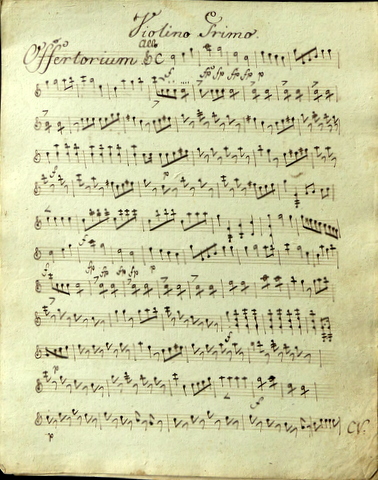 Violino Primo.
Offertorium
C
fp fp fp fp p
f p
f
f fp fp fp p
f
p
p